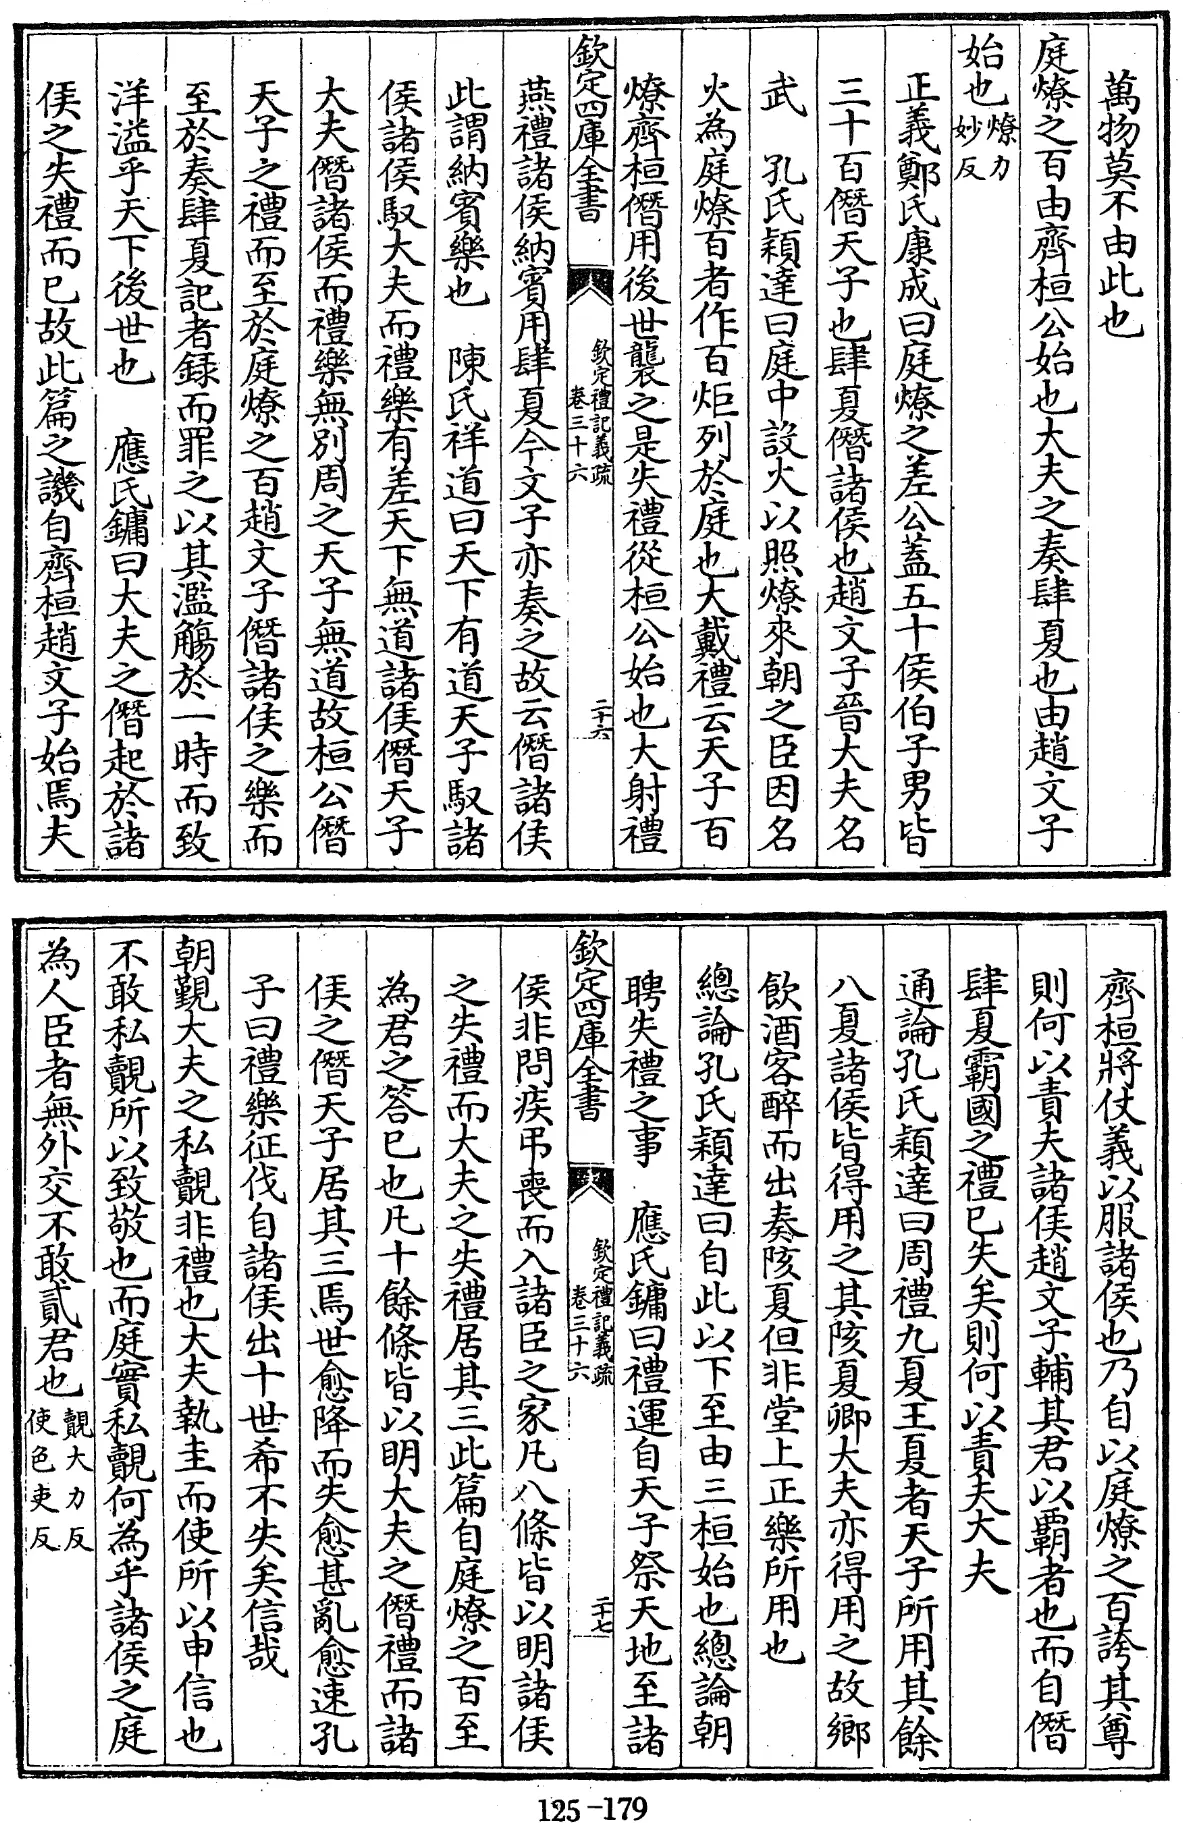 萬物莫不由此也
庭燎之百由齊桓公始也大夫之奏肆夏也由趙文子
始也燎力妙反
正義鄭氏康成曰庭燎之差公蓋五十侯伯子男皆
三十百僭天子也肆夏僭諸侯也趙文子晉大夫名
武　孔氏穎達曰庭中設火以照燎來朝之臣因名
火為庭燎百者作百炬列於庭也大戴禮云天子百
燎齊桓僭用後世襲之是失禮從桓公始也大射禮
欽定四庫全書
欽定禮記義疏
卷三十六
二十六
燕禮諸侯納賓用肆夏今文子亦奏之故云僭諸侯
此謂納賓樂也　陳氏祥道曰天下有道天子馭諸
侯諸侯馭大夫而禮樂有差天下無道諸侯僭天子
大夫僭諸侯而禮樂無別周之天子無道故桓公僭
天子之禮而至於庭燎之百趙文子僭諸侯之樂而
至於奏肆夏記者録而罪之以其濫觴於一時而致
洋溢乎天下後世也　應氏鏞曰大夫之僭起於諸
侯之失禮而已故此篇之譏自齊桓趙文子始焉夫
齊桓將仗義以服諸侯也乃自以庭燎之百誇其尊
則何以責夫諸侯趙文子輔其君以霸者也而自僭
肆夏霸國之禮已失矣則何以責夫大夫
通論孔氏穎達曰周禮九夏王夏者天子所用其餘
八夏諸侯皆得用之其陔夏卿大夫亦得用之故鄉
飲酒客醉而出奏陔夏但非堂上正樂所用也
總論孔氏穎達曰自此以下至由三桓始也總論朝
聘失禮之事　應氏鏞曰禮運自天子祭天地至諸
欽定四庫全書
欽定禮記義疏
卷三十六
二十七
侯非問疾弔喪而入諸臣之家凡八條皆以明諸侯
之失禮而大夫之失禮居其三此篇自庭燎之百至
為君之答已也凡十餘條皆以明大夫之僭禮而諸
侯之僭天子居其三焉世愈降而失愈甚亂愈速孔
子曰禮樂征伐自諸侯出十世希不失矣信哉
朝覲大夫之私覿非禮也大夫執圭而使所以申信也
不敢私覿所以致敬也而庭實私覿何為乎諸侯之庭
為人臣者無外交不敢貳君也覿大力反使色吏反
125-179